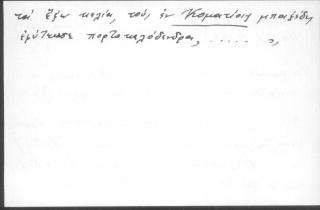 τά ἔξω κελία, τούς ἐν Κοματίοις μπαξέδες
ἐφύτευσε πορτοκαλόδενδρα, ..... ",